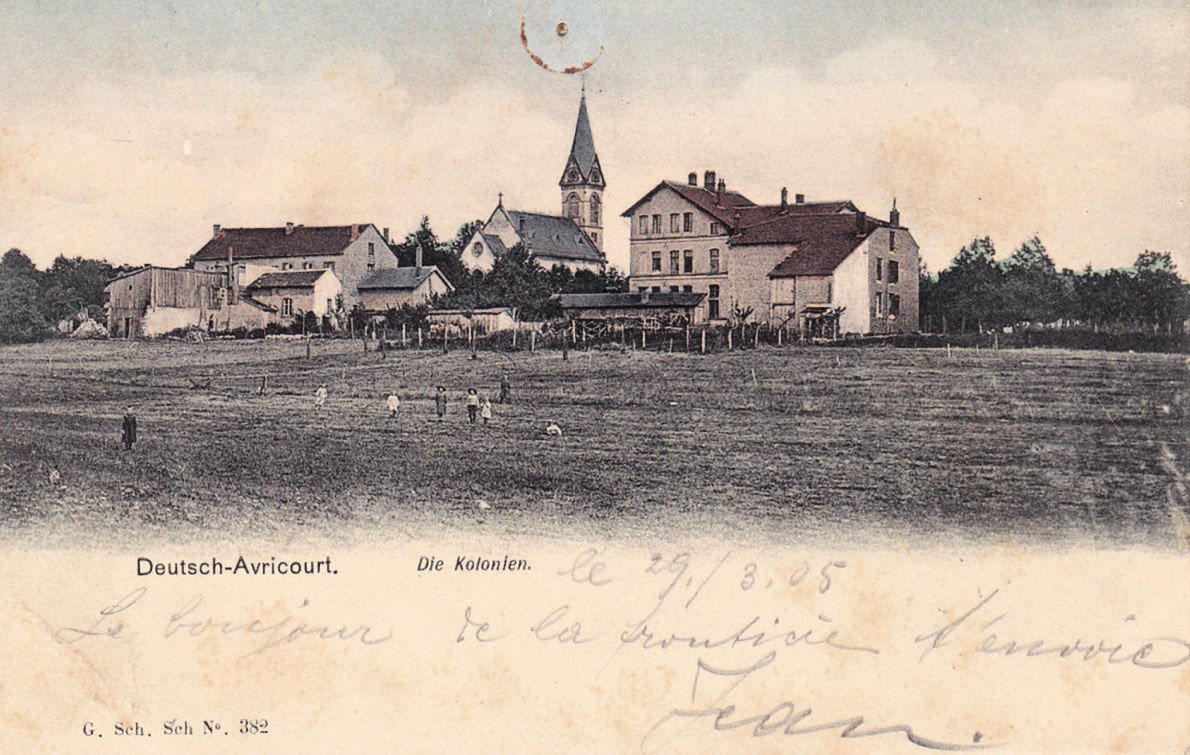 Deutsch-Avricourt. Die Kolonien. le 29./3.05
Le bonjour de la frontière t'envoie
Jean.
G. Sch. Sch Nº. 382